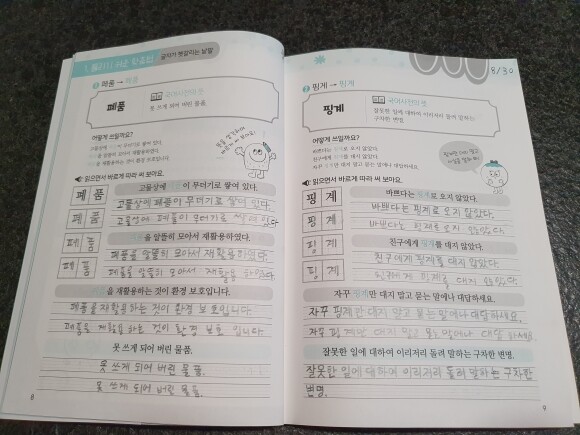 글자가 헷갈리는 낱말
폐품 → 폐품
폐품
국어사전의 뜻
못 쓰게 되어 버린 물품.
어떻게 쓰일까요?
고물상에 폐품이 무더기로 쌓여 있다.
폐품을 알뜰히 모아서 재활용하였다.
폐품을 재활용하는 것이 환경 보호입니다.
읽으면서 바르게 따라 써 보아요.
고물상에 폐품이 무더기로 쌓여 있다.
폐 품
고물상에 폐품이 무더기로 쌓여 있다.
폐 품
고물상에 폐품이 무더기로 쌓여 있다.
폐품을 알뜰히 모아서 재활용하였다.
폐 품
폐품을 알뜰히 모아서 재활용하였다.
폐 품
폐품을 알뜰히 모아서 재활용 하였다.
폐품을 재활용하는 것이 환경 보호입니다.
폐품을 재활용하는 것이 환경 보호입니다.
폐품을 재활용하는 것이 환경 보호 입니다.
못 쓰게 되어 버린 물품.
못 쓰게 되어 버린 물품.
못 쓰게 되어 버린 물품.
8
8/30
핑게 → 핑계
핑계
국어사전의 뜻
잘못한 일에 대하여 이리저리 돌려 말하는
구차한 변명.
어떻게 쓰일까요?
바쁘다는 핑계로 오지 않았다.
친구에게 핑계를 대지 않았다.
자꾸 핑계만 대지 말고 묻는 말에나 대답하세요.
읽으면서 바르게 따라 써 보아요.
바쁘다는 핑계로 오지 않았다.
핑 계
바쁘다는 핑계로 오지 않았다.
핑 계
바쁘다는 핑계로 오지 않았다.
친구에게 핑계를 대지 않았다.
핑 계
친구에게 핑계를 대지 않았다.
핑 계
친구에게 핑계를 대지 않았다.
자꾸 핑계만 대지 말고 묻는 말에나 대답하세요.
자꾸 핑계만 대지 말고 묻는 말에나 대답하세요.
자꾸 핑계만 대지 말고 묻는 말에나 대답하세요.
잘못한 일에 대하여 이리저리 돌려 말하는 구차한 변명.
잘못한 일에 대하여 이리저리 돌려 말하는 구차한
변명.
9